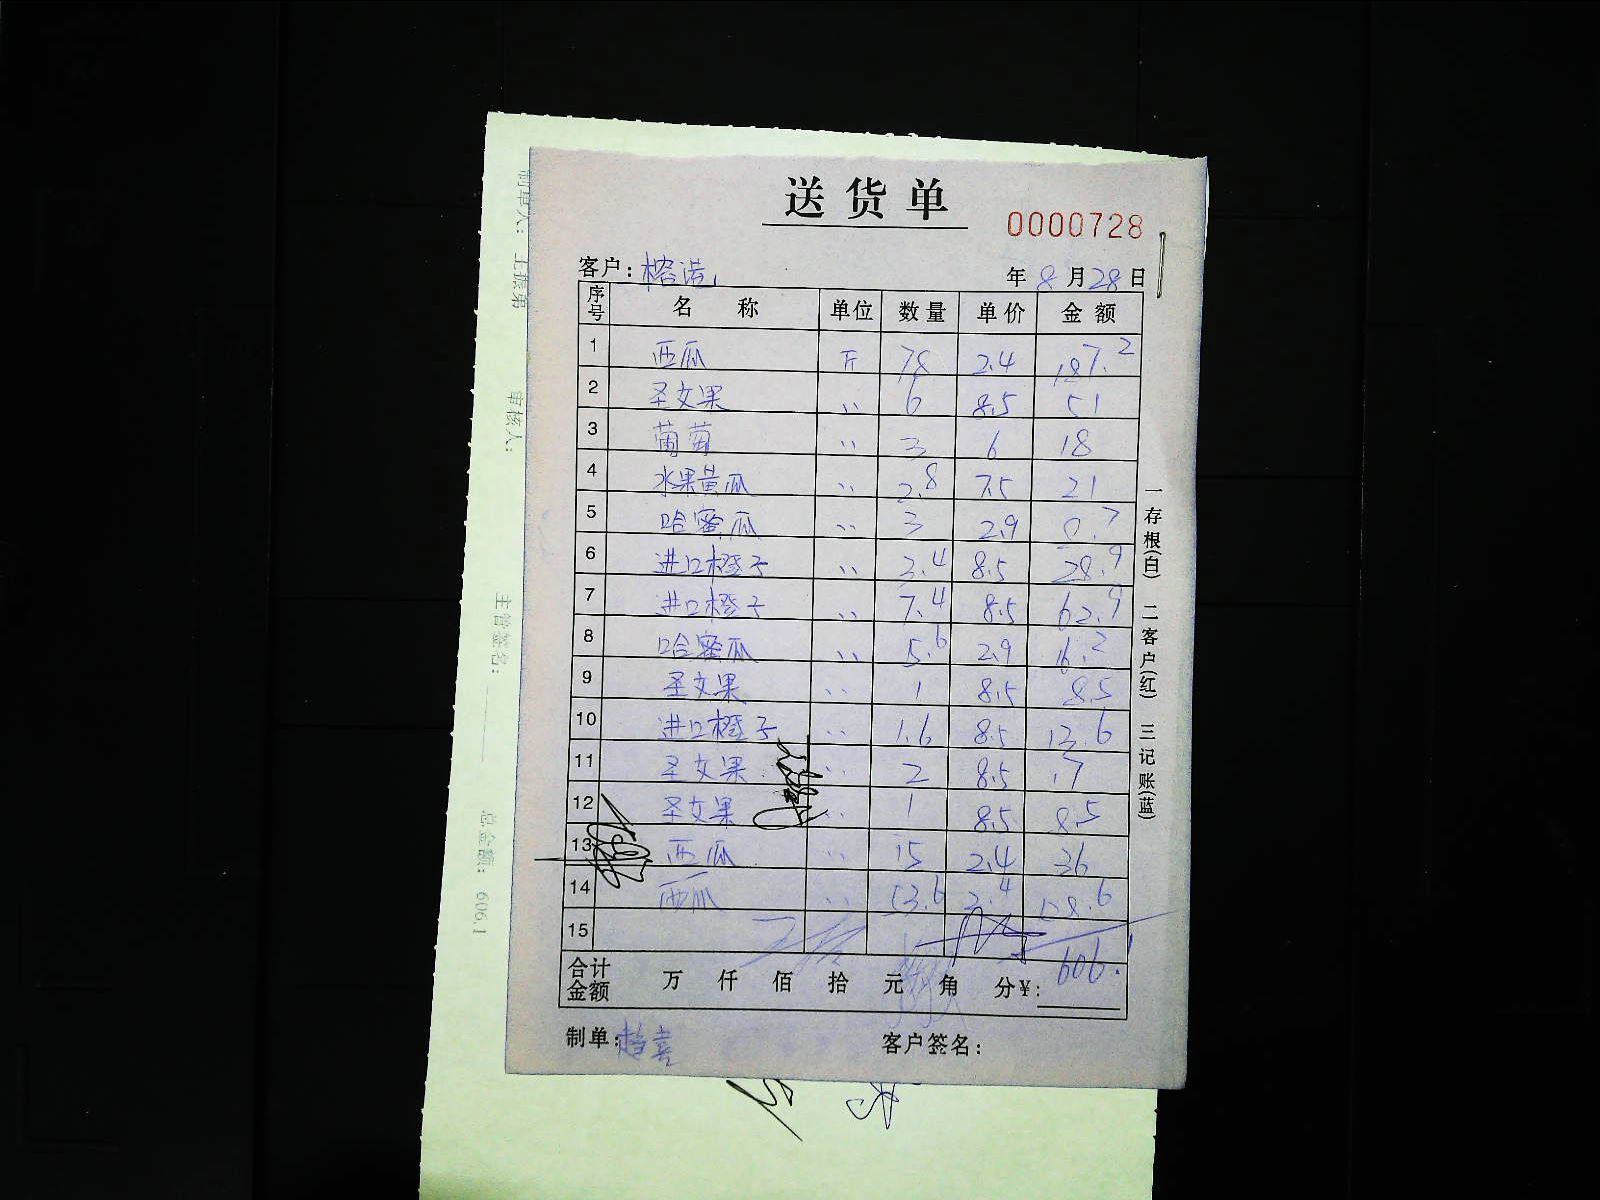 送货单
0000728
客户: 榕港 年 8 月 28 日
序号 名称 单位 数量 单价 金额
1 西瓜 斤 78 2.4 187.2
2 圣女果 〃 6 8.5 51
3 葡萄 〃 3 6 18
4 水果黄瓜 〃 2.8 7.5 21
5 哈蜜瓜 〃 3 2.9 8.7
6 进口橙子 〃 3.4 8.5 28.9
7 进口橙子 〃 7.4 8.5 62.9
8 哈蜜瓜 〃 5.6 2.9 16.2
9 圣女果 〃 1 8.5 8.5
10 进口橙子 〃 1.6 8.5 13.6
11 圣女果 〃 2 8.5 17
12 圣女果 〃 1 8.5 8.5
13 西瓜 〃 15 2.4 36
14 西瓜 〃 53.6 2.4 128.6
15
合计金额 万 仟 佰 拾 元 角 分 ¥: 606.1
制单: 客户签名:
一存根(白) 二客户(红) 三记账(蓝)
制单人:
审核人:
主管签名:
总金额: 606.1